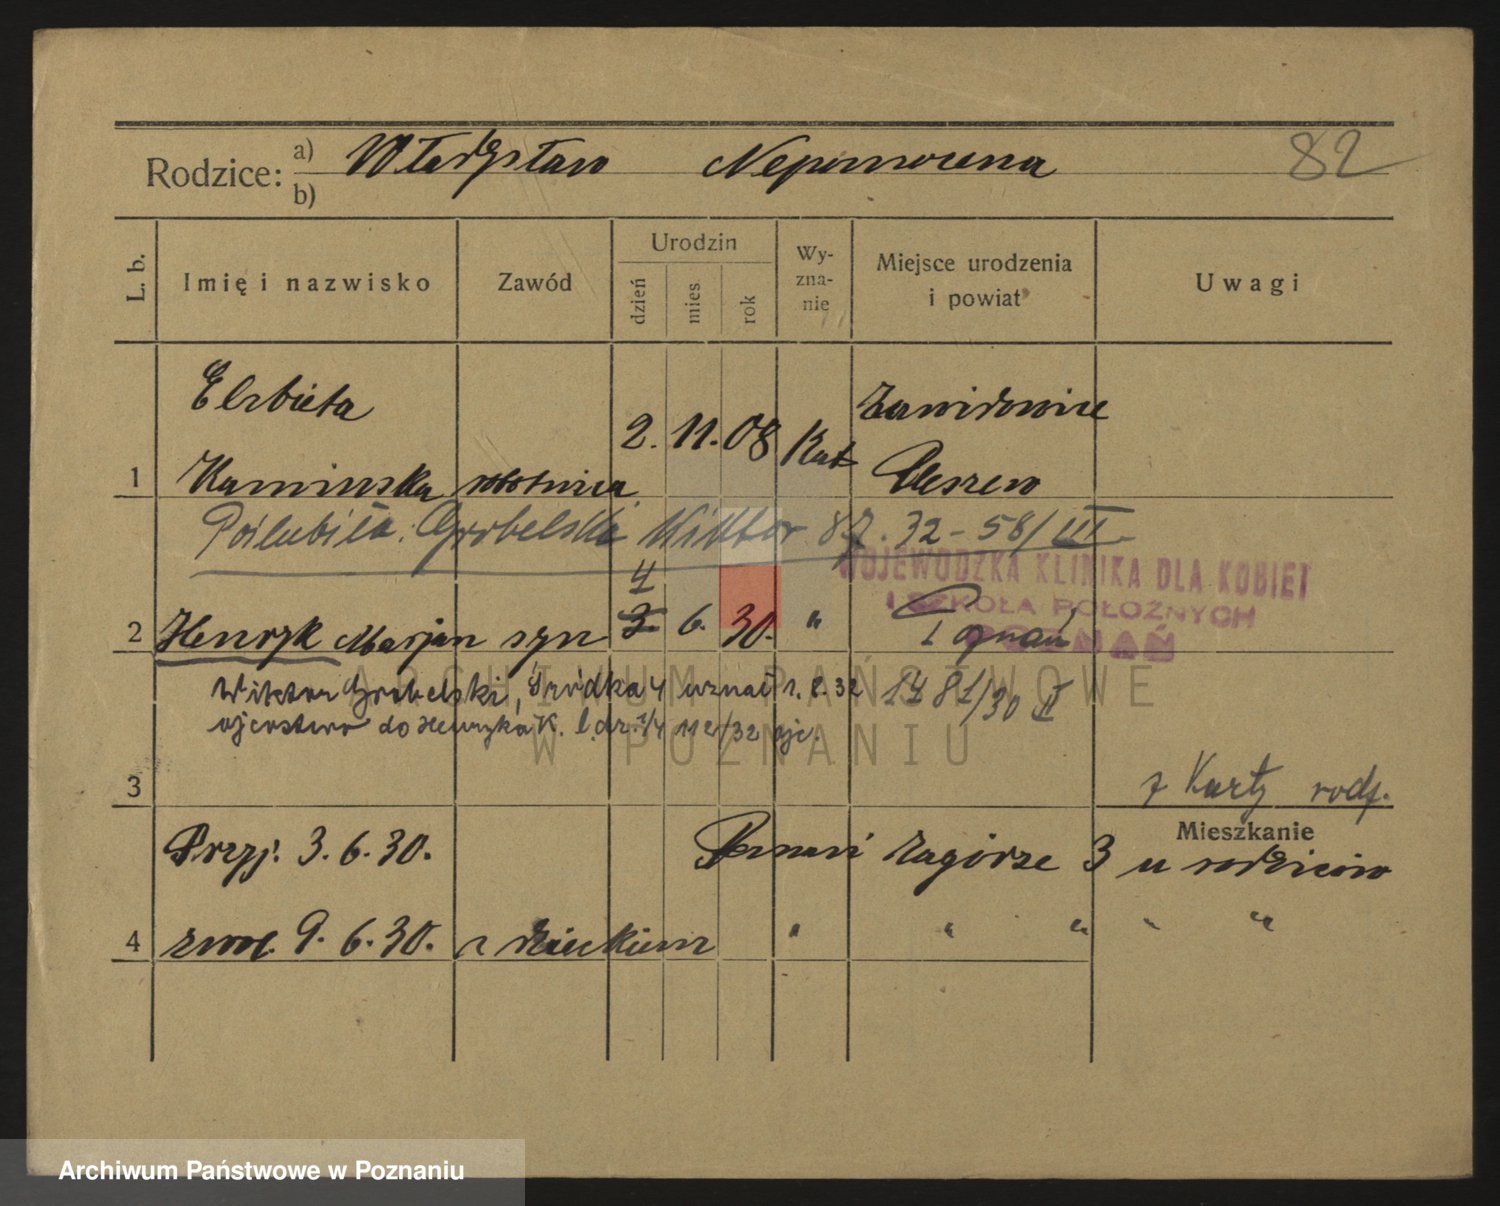 Rodzice: a) Władysław Nepomucena 82
b)
L. b. Imię i nazwisko Zawód Urodzin dzień mies rok Wy-zna-nie Miejsce urodzenia i powiat Uwagi
Elzbieta 2. 11. 08 Kat Zawidowice
1 Kaminska robotnica Pleszew
Poślubiła: Grobelski Wiktor 87. 32 - 58/III
4
WOJEWÓDZKA KLINIKA DLA KOBIET
I SZKOŁA POŁOŻNYCH
POZNAŃ
2 Henryk Marjan syn 3. 6. 30. " Poznań
Wiktor Grobelski, Śródka 4 uznał 1. 8. 32 1481/30 II
ojcostwo do Henryka K. l. dz. 7/4 112/32 ojc.
3 z Karty rodz.
Mieszkanie
Przyj. 3. 6. 30. Poznań Zagórze 3 u rodziców
4 zwol. 9. 6. 30. z dzieckiem " " " " "
ARCHIWUM PAŃSTWOWE
W POZNANIU
Archiwum Państwowe w Poznaniu